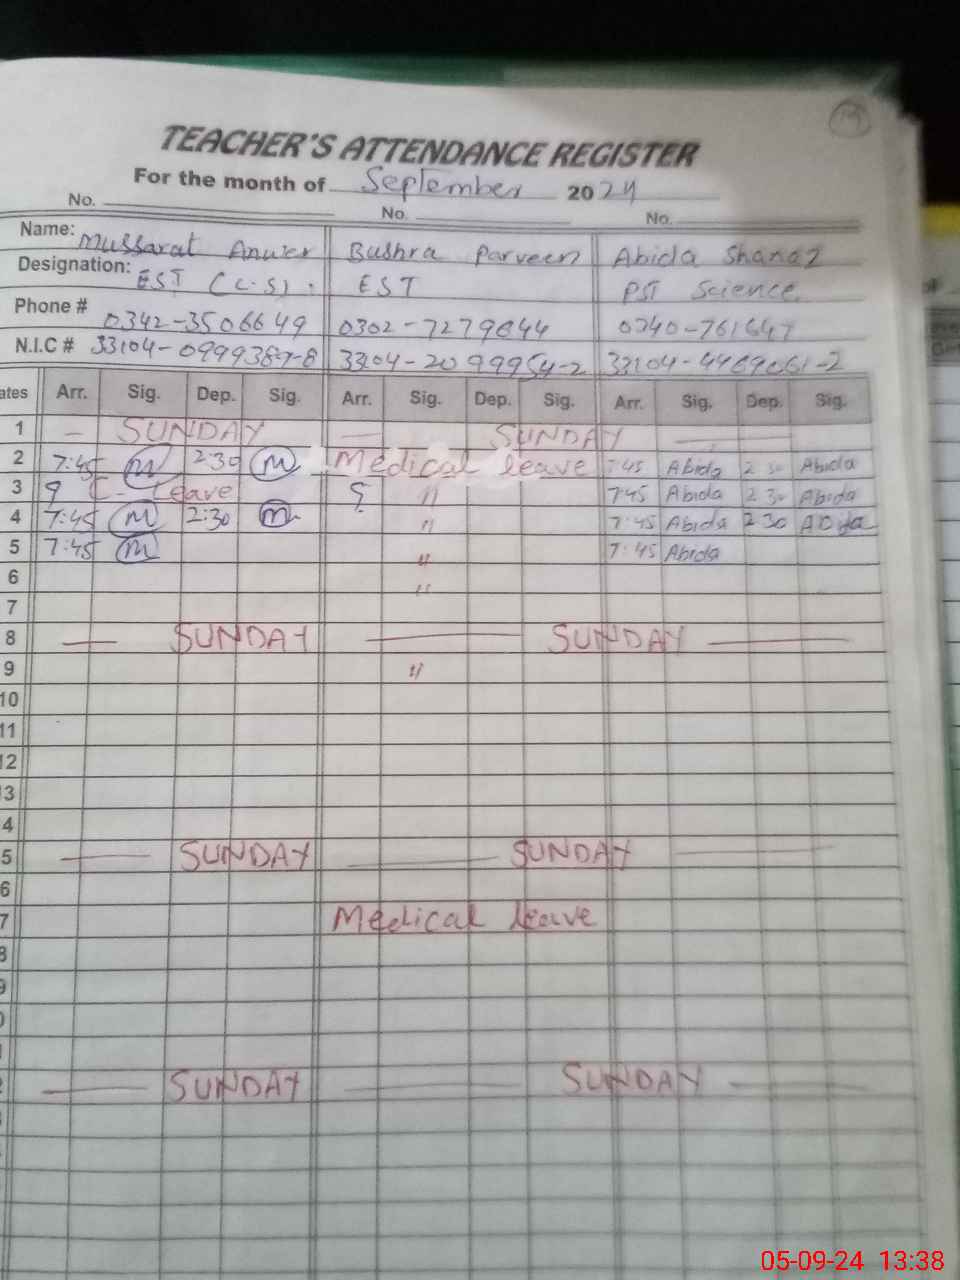 19
TEACHER'S ATTENDANCE REGISTER
For the month of September 2024
No. No. No.
Name: Mussarat Anwer Bushra Parveen Abida Shanaz
Designation: EST (C.S). EST PST Science.
Phone # 0342-3506649 0302-7279644 0340-761647
N.I.C # 33104-0999389-8 33104-2099954-2 33104-4469061-2
ates Arr. Sig. Dep. Sig. Arr. Sig. Dep. Sig. Arr. Sig. Dep. Sig.
1 — SUNDAY — SUNDAY —
2 7:45 m 2:30 m Medical leave 7:45 Abida 2 30 Abida
3 C- Leave " 7:45 Abida 2 30 Abida
4 7:45 m 2:30 m " 7:45 Abida 2 30 Abida
5 7:45 m " 7:45 Abida
6 "
7
8 — SUNDAY — SUNDAY —
9 "
10
11
12
13
4
5 — SUNDAY — SUNDAY —
6
7 Medical leave
8
9
— SUNDAY SUNDAY —
05-09-24 13:38